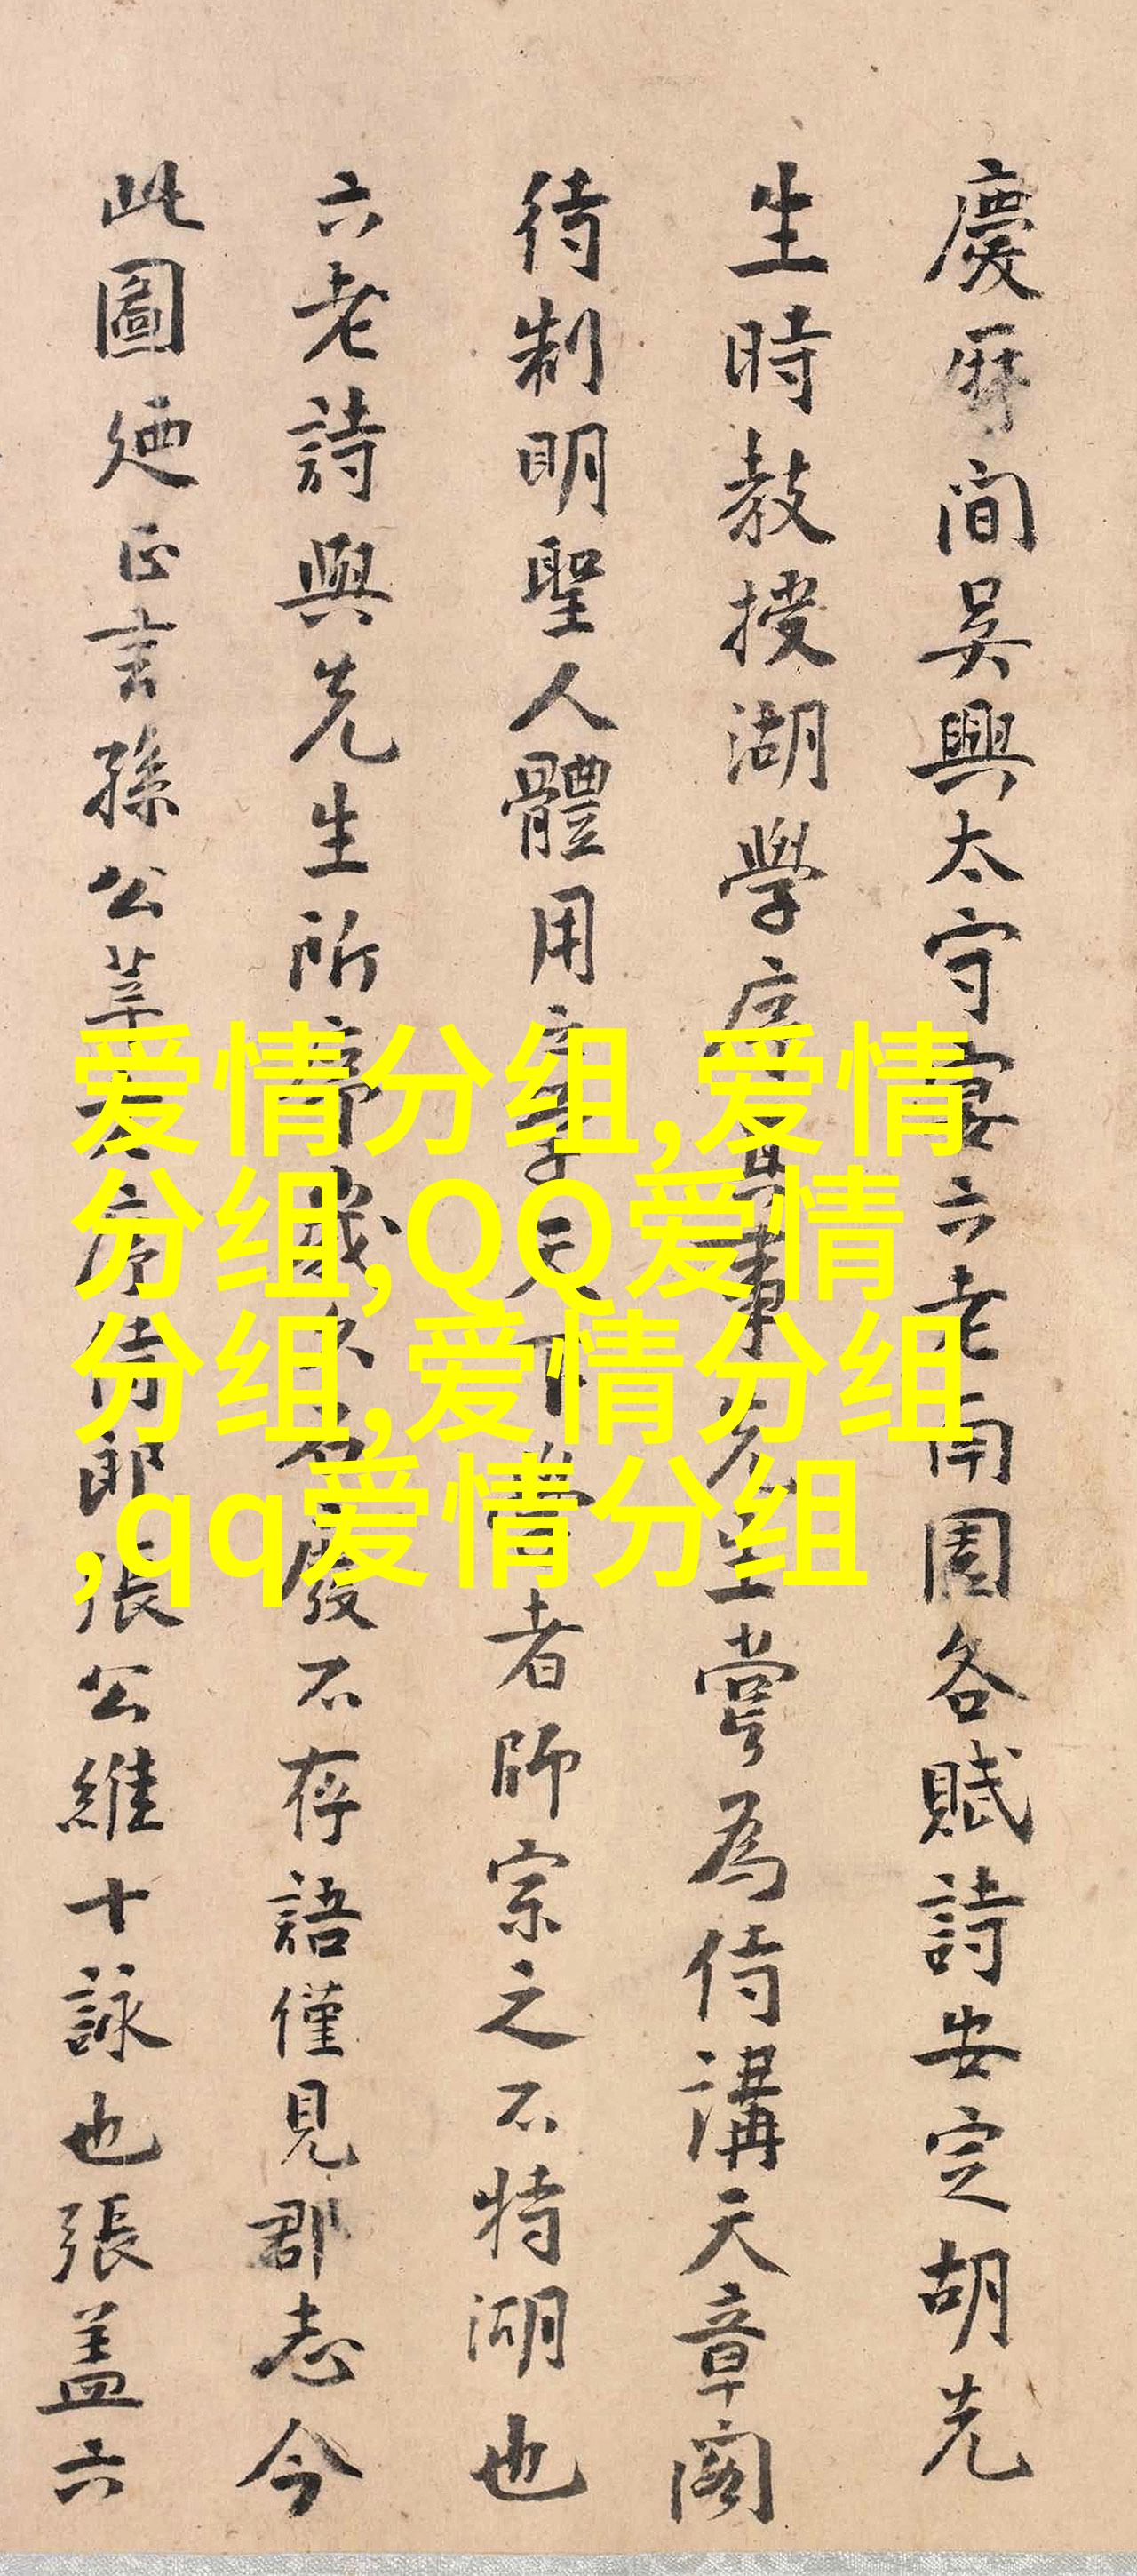 慶曆間吳興太守宴六老南園各賦詩安定胡先
生時教授湖學序其事先生嘗為侍講天章閣
待制明聖人體用之學天下學者師宗之不特湖也
六老詩與先生所序歲久石廢不存語僅見郡志今
此圖廼正言孫公莘老序侍郎張公維十詠也張蓋六
爱情分组,爱情
分组,QQ爱情
分组,爱情分组
,qq爱情分组